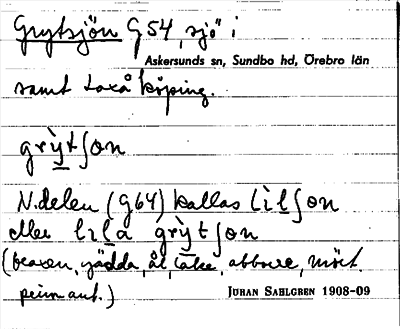 Grytsjön G54, sjö i
Askersunds sn, Sundbo hd, Örebro län
samt Laxå köping.
grỳtʃon
N.delen (G64) kallas lìlʃon
eller lìla grỳtʃon
(braxen, gädda, ål, lake, abborre, mört.
prim. ant.)
JÖRAN SAHLGREN 1908-09